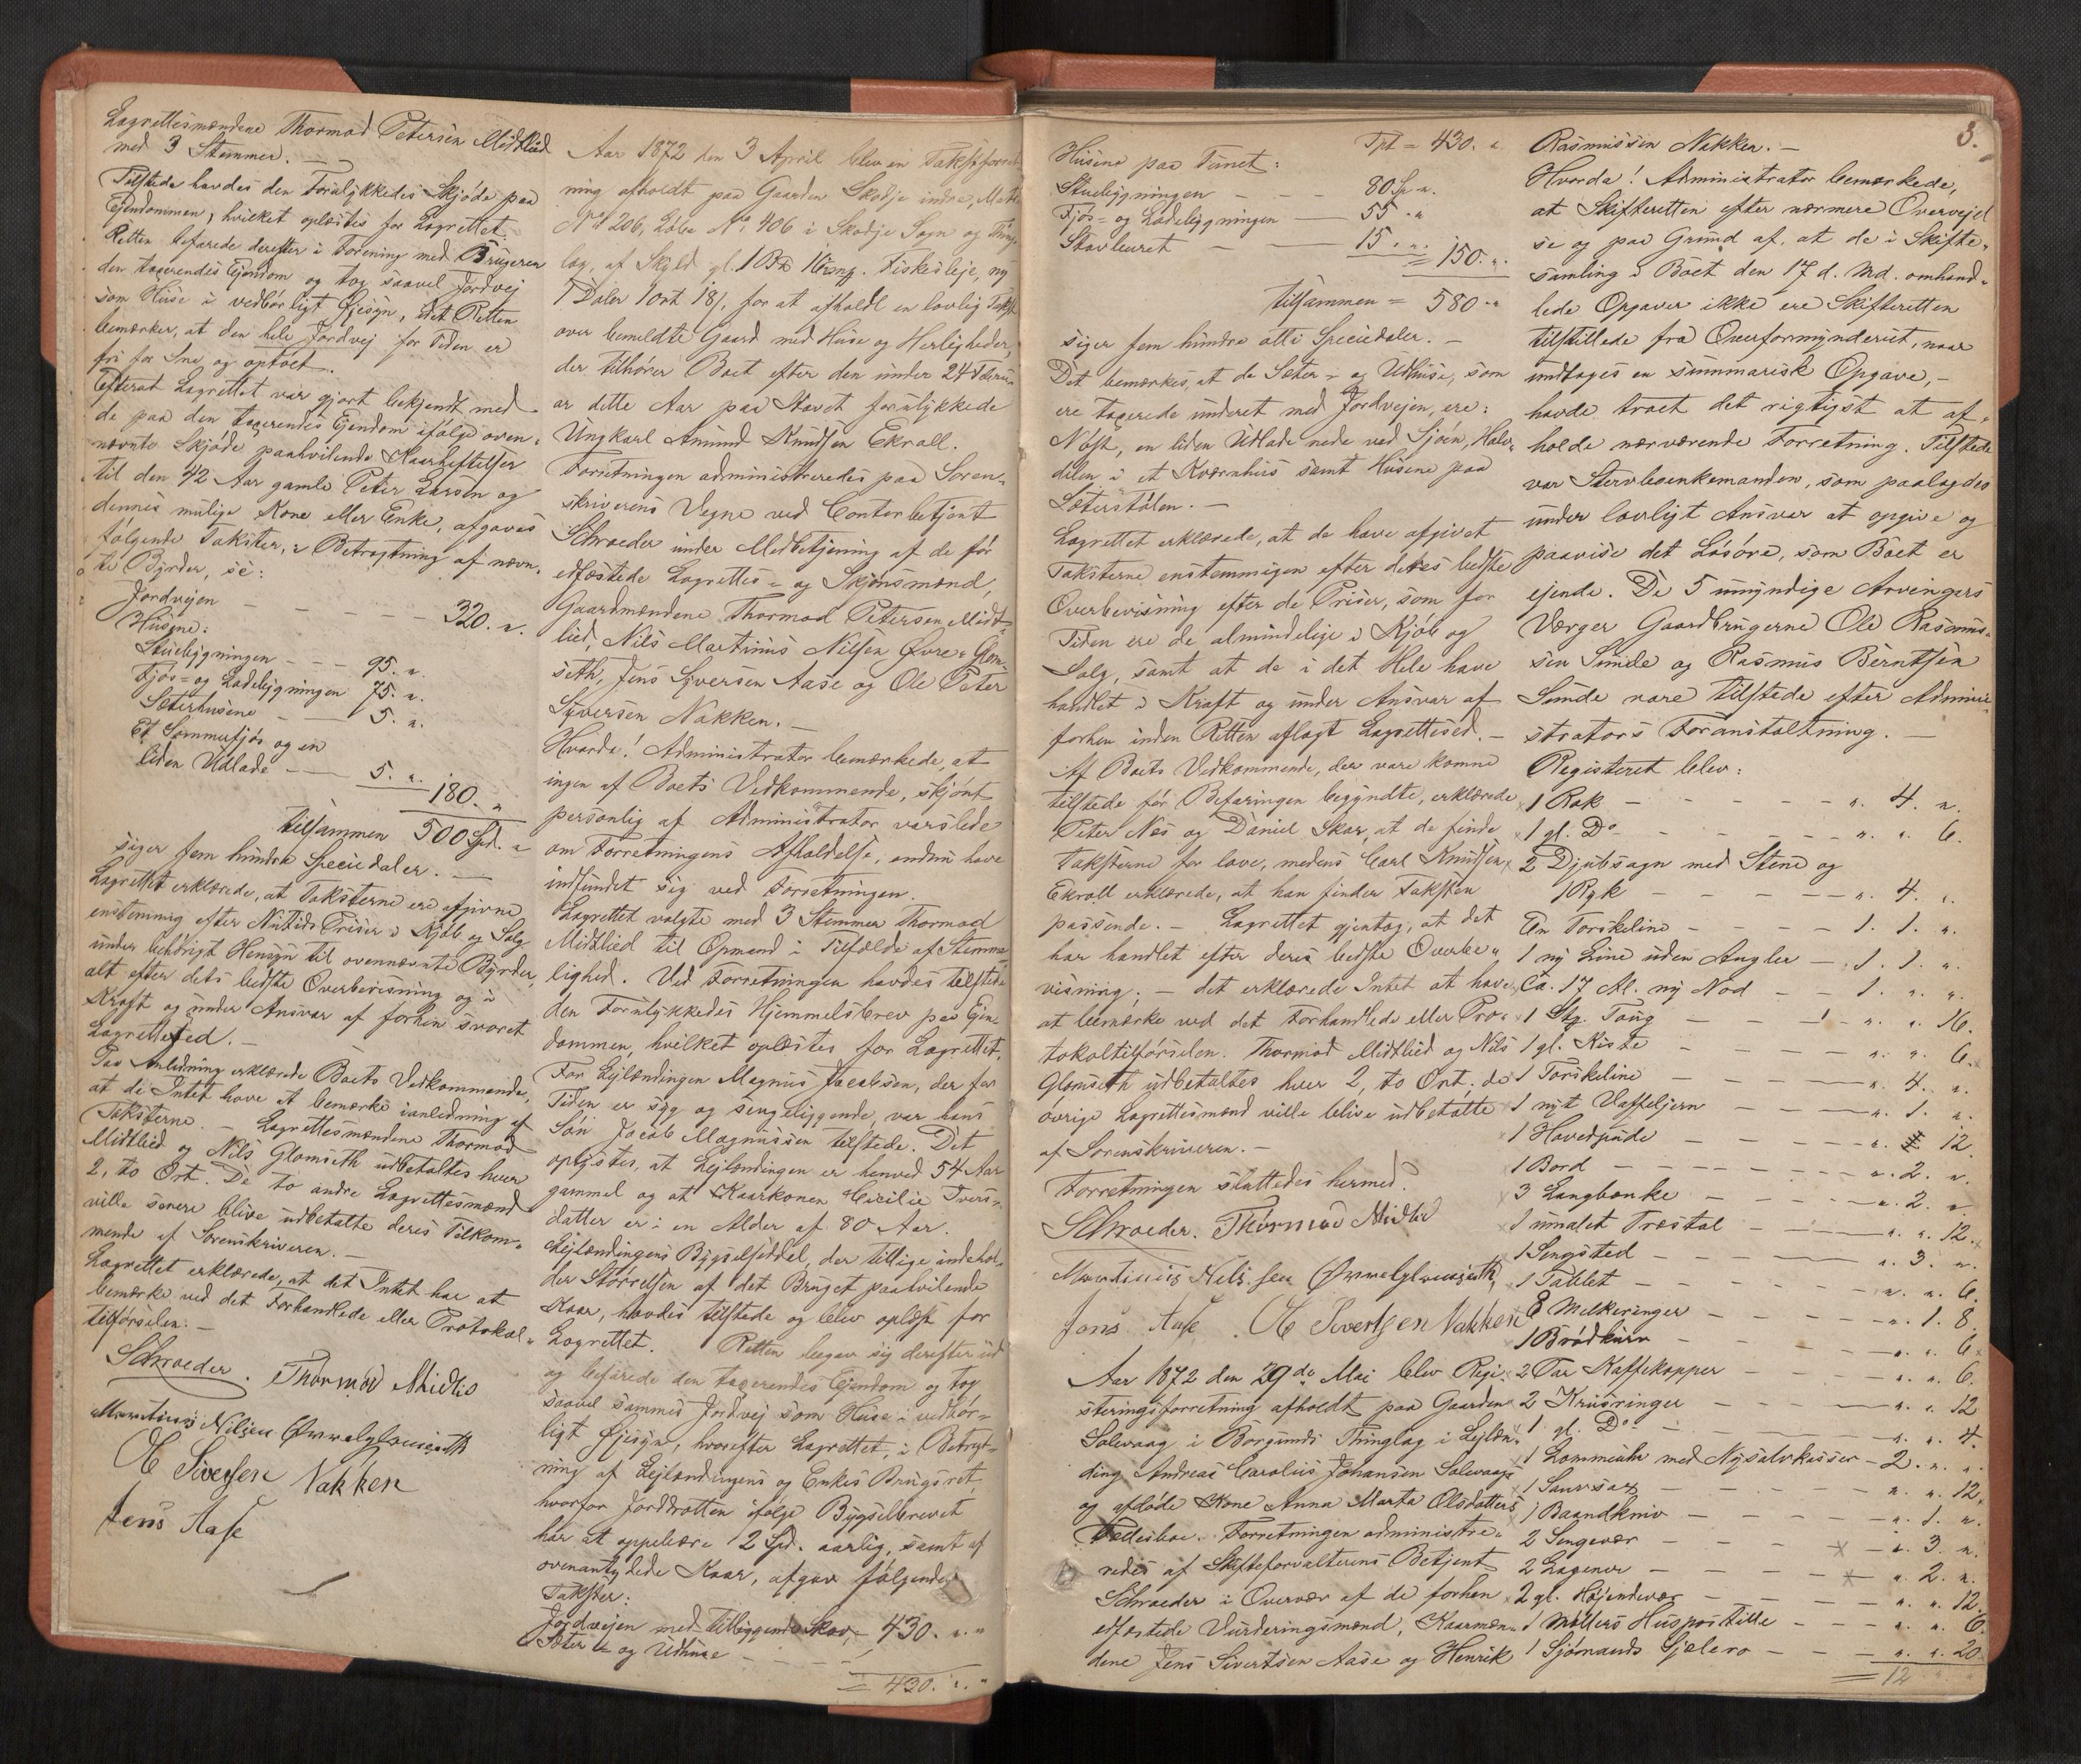 Lagrettesmændene Thormod Petersen Midtlied
med 3 Stemmer. —
Tilstede havdes den Forulykkedes Skjøde paa
Ejendommen, hvilket oplæstes for Lagrettet.
Retten befarede derefter i Forening med Brugeren
den taxerendes Ejendom og tog saavel Jordvej
som Huse i vedbørligt Øjesyn, idet Retten
bemærker, at den hele Jordvej for Tiden er
fri for Sne og optøet.
Efterat Lagrettet var gjort bekjendt med
de paa den taxerendes Ejendom ifølge oven-
nævnte Skjøde paahvilende Kaarheftelser
til den 42 Aar gamle Peter Larsen og
dennes mulige Kone eller Enke, afgaves
følgende Takster, i Betragtning af nævn-
te Byrder, se:
Jordvejen — — — — 320. „.
Husene:
Stuebygningen — — — 95. „.
Fjøs- og Ladebygningen 75. „.
Sæterhusene — — 5. „.
Et Sommerfjøs og en
liden Udlade — — 5. „. 180. „
tilsammen 500 Spd. „
siger fem hundre Speciedaler. —
Lagrettet erklærede, at Taksterne ere afgivne
enstemmig efter Nutids Priser i Kjøb og Salg
under behørigt Hensyn til ovennævnte Byrder,
alt efter dets bedste Overbevisning og i
Kraft og under Ansvar af forhen svoret
Lagretteed. —
Paa Anledning erklærede Boets Vedkommende,
at de Intet have at bemærke i anledning af
Taksterne. — Lagrettesmændene Thormod
Midtlied og Nils Glomseth udbetaltes hver
2, to Ort. De to andre Lagrettesmænd
ville senere blive udbetalte deres Tilkom-
mende af Sorenskriveren. —
Lagrettet erklærede, at det Intet har at
bemærke ved det Forhandlede eller Protokol-
tilførselen. —
Schroeder. Thormod Midlid
Martinus Nilsen Øvrelglomseth
O Siversen Nakken
Jens Aase
Aar 1872 den 3 April blev en Taksforret-
ning afholdt paa Gaarden Skodje indre, Matr.
No 206, Løbe No. 406 i Skodje Sogn og Thing-
lag, af Skyld gl. 1 B℔ 16 mg. Fiskesleje, ny
1 Daler 1 ort 18 ſ, for at afholde en lovlig Takst
over bemeldte Gaard med Huse og Herligheder,
der tilhører Boet efter den under 24 Febru-
ar dette Aar paa Havet forulykkede
Ungkarl Amund Knudsen Ekroll.
Forretningen administreredes paa Soren-
skriverens Vegne ved Contorbetjent
Schroeder under Medbetjening af de før
edfæstede Lagrettes- og Skjønsmænd,
Gaardmændene Thormod Petersen Midt-
lied, Nils Martinus Nilsen Øvre-Glom-
seth, Jens Syversen Aase og Ole Peter
Syversen Nakken. —
Hvorda! Administrator bemærkede, at
ingen af Boets Vedkommende, skjønt
personlig af Administrator varslede
om Forretningens Afholdelse, endnu have
indfundet sig ved Forretningen.
Lagrettet valgte med 3 Stemmer Thormod
Midtlied til Opmand i Tilfælde af Stemme-
lighed. Ved Forretningen havdes tilstede
den Forulykkedes Hjemmelsbrev paa Ejen-
dommen, hvilket oplæstes for Lagrettet.
For Lejlændingen Magnus Jacobsen, der for
Tiden er syg og sengeliggende, var hans
Søn Jacob Magnussen tilstede. Det
oplystes, at Lejlændingen er henved 54 Aar
gammel og at Kaarkonen Cicilie Ivers-
datter er i en Alder af 80 Aar.
Lejlændingens Bygselseddel, der tillige indehol-
der Størrelsen af det Bruget paahvilende
Kaar, havdes tilstede og blev oplæst for
Lagrettet. Retten begav sig derefter ud
og befarede den taxerendes Ejendom og tog
saavel sammes Jordvej som Huse i vedbør-
ligt Øjesyn, hvorefter Lagrettet, i Betragt-
ning af Lejlændingens og Enkes Brugsret,
hvorfor Jorddrotten ifølge Bygselbrevet
har at oppebære 2 Spd. aarlig, samt af
ovenantydede Kaar, afgav følgende
Takster:
Jordvejen med tilliggende Skov, — 430. „. „
Sæter- og Udhuse — — — —
= 430. „. „
Tpt = 430. „
Husene paa Tunet:
Stuebygningen — — — 80 Sp „.
Fjøs- og Ladebygningen — 55. „
Stavburet — — — 15. „. = 150. „.
tilsammen = 580 „
siger fem hundre otti Speciedaler. —
Det bemærkes, at de Sæter- og Udhuse, som
ere taxerede underet med Jordvejen, ere:
Nøst, en liden Udlade nede ved Sjøen, Halv-
delen i et Kværnhus samt Husene paa
Sæterstølen. —
Lagrettet erklærede, at de have afgivet
Taksterne enstemmigen efter deres bedste
Overbevisning efter de Priser, som for
Tiden ere de almindelige i Kjøb og
Salg, samt at de i det Hele have
handlet i Kraft og under Ansvar af
forhen inden Retten aflagt Lagretteed. —
Af Boets Vedkommende, der vare komne
tilstede før Befaringen begyndte, erklærede
Peter Næs og Daniel Skar, at de finde
Taksterne for lave, medens Carl Knudsen
Ekroll erklærede, at han finder Taksten
passende. — Lagrettet gjentog, at det
har handlet efter deres bedste Overbe-
visning; — det erklærede Intet at have
at bemærke ved det Forhandlede eller Pro-
tokoltilførselen. Thormod Midtlied og Nils
Glomseth udbetaltes hver 2, to Ort; de
øvrige Lagrettesmænd ville blive udbetalte
af Sorenskriveren. —
Forretningen sluttedes hermed.
Schroeder. Thormod Midlid
Martinus Nilssen Øvrelglomseth,
Jens Aase. O Sivertsen Nakken
Aar 1872 den 29de Mai blev Regi-
steringsforretning afholdt paa Gaarden
Solevaag i Borgunds Thinglag i Lejlæn-
ding Andreas Carolus Johansen Solevaags
og afdøde Kone Anna Marta Olsdatters
Fællesboe. Forretningen administre-
redes af Skifteforvalterens Betjent
Schroeder i Overvær af de forhen
edfæstede Vurderingsmænd, Kaarmæn-
dene Jens Sivertsen Aase og Henrik
3.
Rasmussen Nakken. —
Hvorda! Administrator bemærkede,
at Skifteretten efter nærmere Overvejel-
se og paa Grund af, at de i Skifte-
samling i Boet den 17 d. Md. omhand-
lede Opgaver ikke ere Skifteretten
tilstillede fra Overformynderiet, naar
undtages en summarisk Opgave, —
havde troet det rigtigst at af-
holde nærværende Forretning. Tilstede
var Stervboenkemanden, som paalagdes
under lovligt Ansvar at opgive og
paavise det Løsøre, som Boet er
ejende. De 5 umyndige Arvingers
Værger Gaardbrugerne Ole Rasmus-
sen Sunde og Rasmus Berntsen
Sunde vare tilstede efter Admini-
strators Foranstaltning. —
Registeret blev:
1 Rok — — — — „. 4. „.
1 gl. Do — — — — „. „. 6.
2 Djubsagn med Stene og
1 Ryk — — — — „. 4. „.
En Torskeline — — — — 1. 1. „.
1 ny Line uden Angler — 1. 1. „.
Ca. 17 Al. ny Nod — — 1. „. „.
1 Stg. Toug — — — „. „. 16.
1 gl. Kiste — — — — „. „. 6.
1 Torskeline — — — — „. 4. „.
1 nyt Vaffeljern — — — „. 1. „.
1 Hovedpude — — — — „. „. 12.
1 Bord — — — — „. 2. „.
3 Langbænke — — — — „. 2. „.
1 umalet Træstol — — — „. „. 12.
1 Sengsted — — — — „. 3. „.
1 Tablet — — — — „. „. 6.
8 Melkeringer — — — — „. 1. 8.
1 Brødkurv — — — — „. „. 6.
2 Par Kaffekopper — — — „. „. 6.
2 Krusringer — — — — „. „. 12
1 gl. Do — — — — „. „. 4.
1 Lommeuhr med Nysølvkasser — 2. „. „.
1 Saursax — — — — „. „. 12.
1 Baandkniv — — — — „. 1. „.
2 Sengevær — — — — „. 3. „.
2 Lagener — — — — „. 2. „.
2 gl. Høiendevær — — — „. „. 12.
1 Møllers Huspostille — — — „. „. 6.
1 Sjømands Sjælero — — — „. „. 20.
= 12